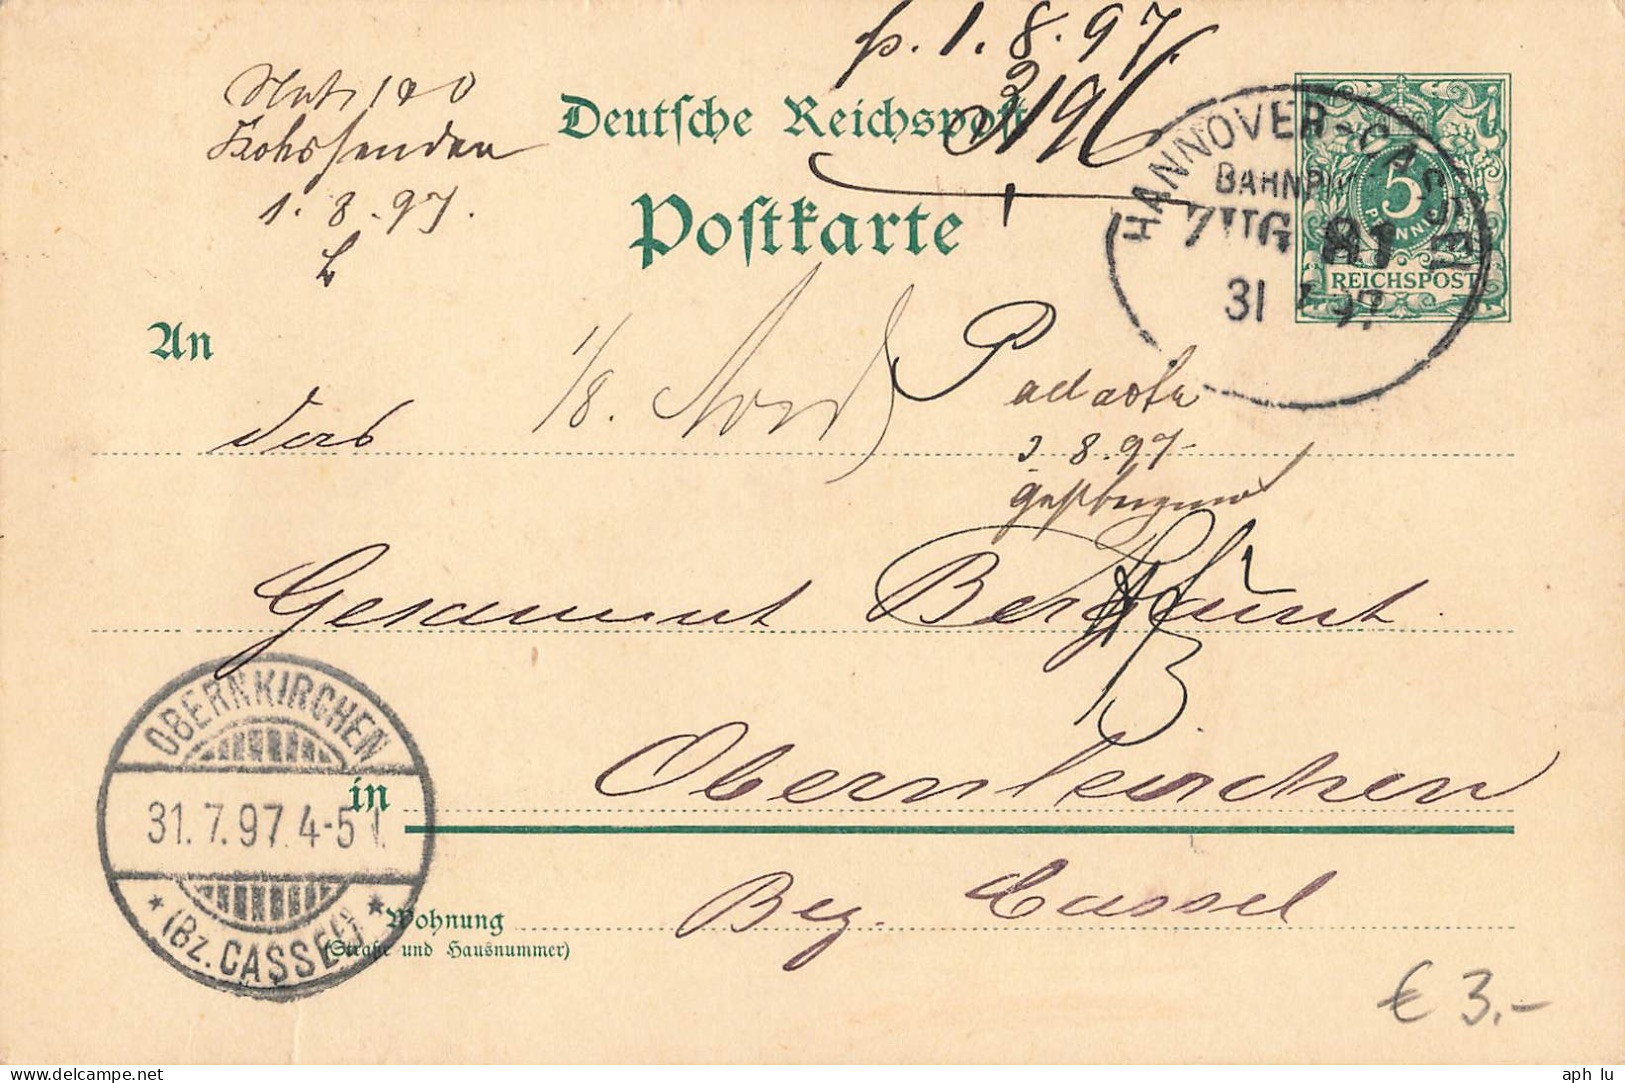 p. 1. 8. 97.
3196
1. 8. 97.
Deutsche Reichspost
Postkarte
HANNOVER-CASSEL
BAHNPOST
ZUG 81
31 7 97
5
PFENNIG
REICHSPOST
An
1/8.
das
8. 97
Gesammt Bergamt
in Obernkirchen
OBERNKIRCHEN
31. 7. 97. 4-5 N.
* (BZ. CASSEL) *
Bez. Cassel
Wohnung
(Straße und Hausnummer)
€ 3.-
aph lu